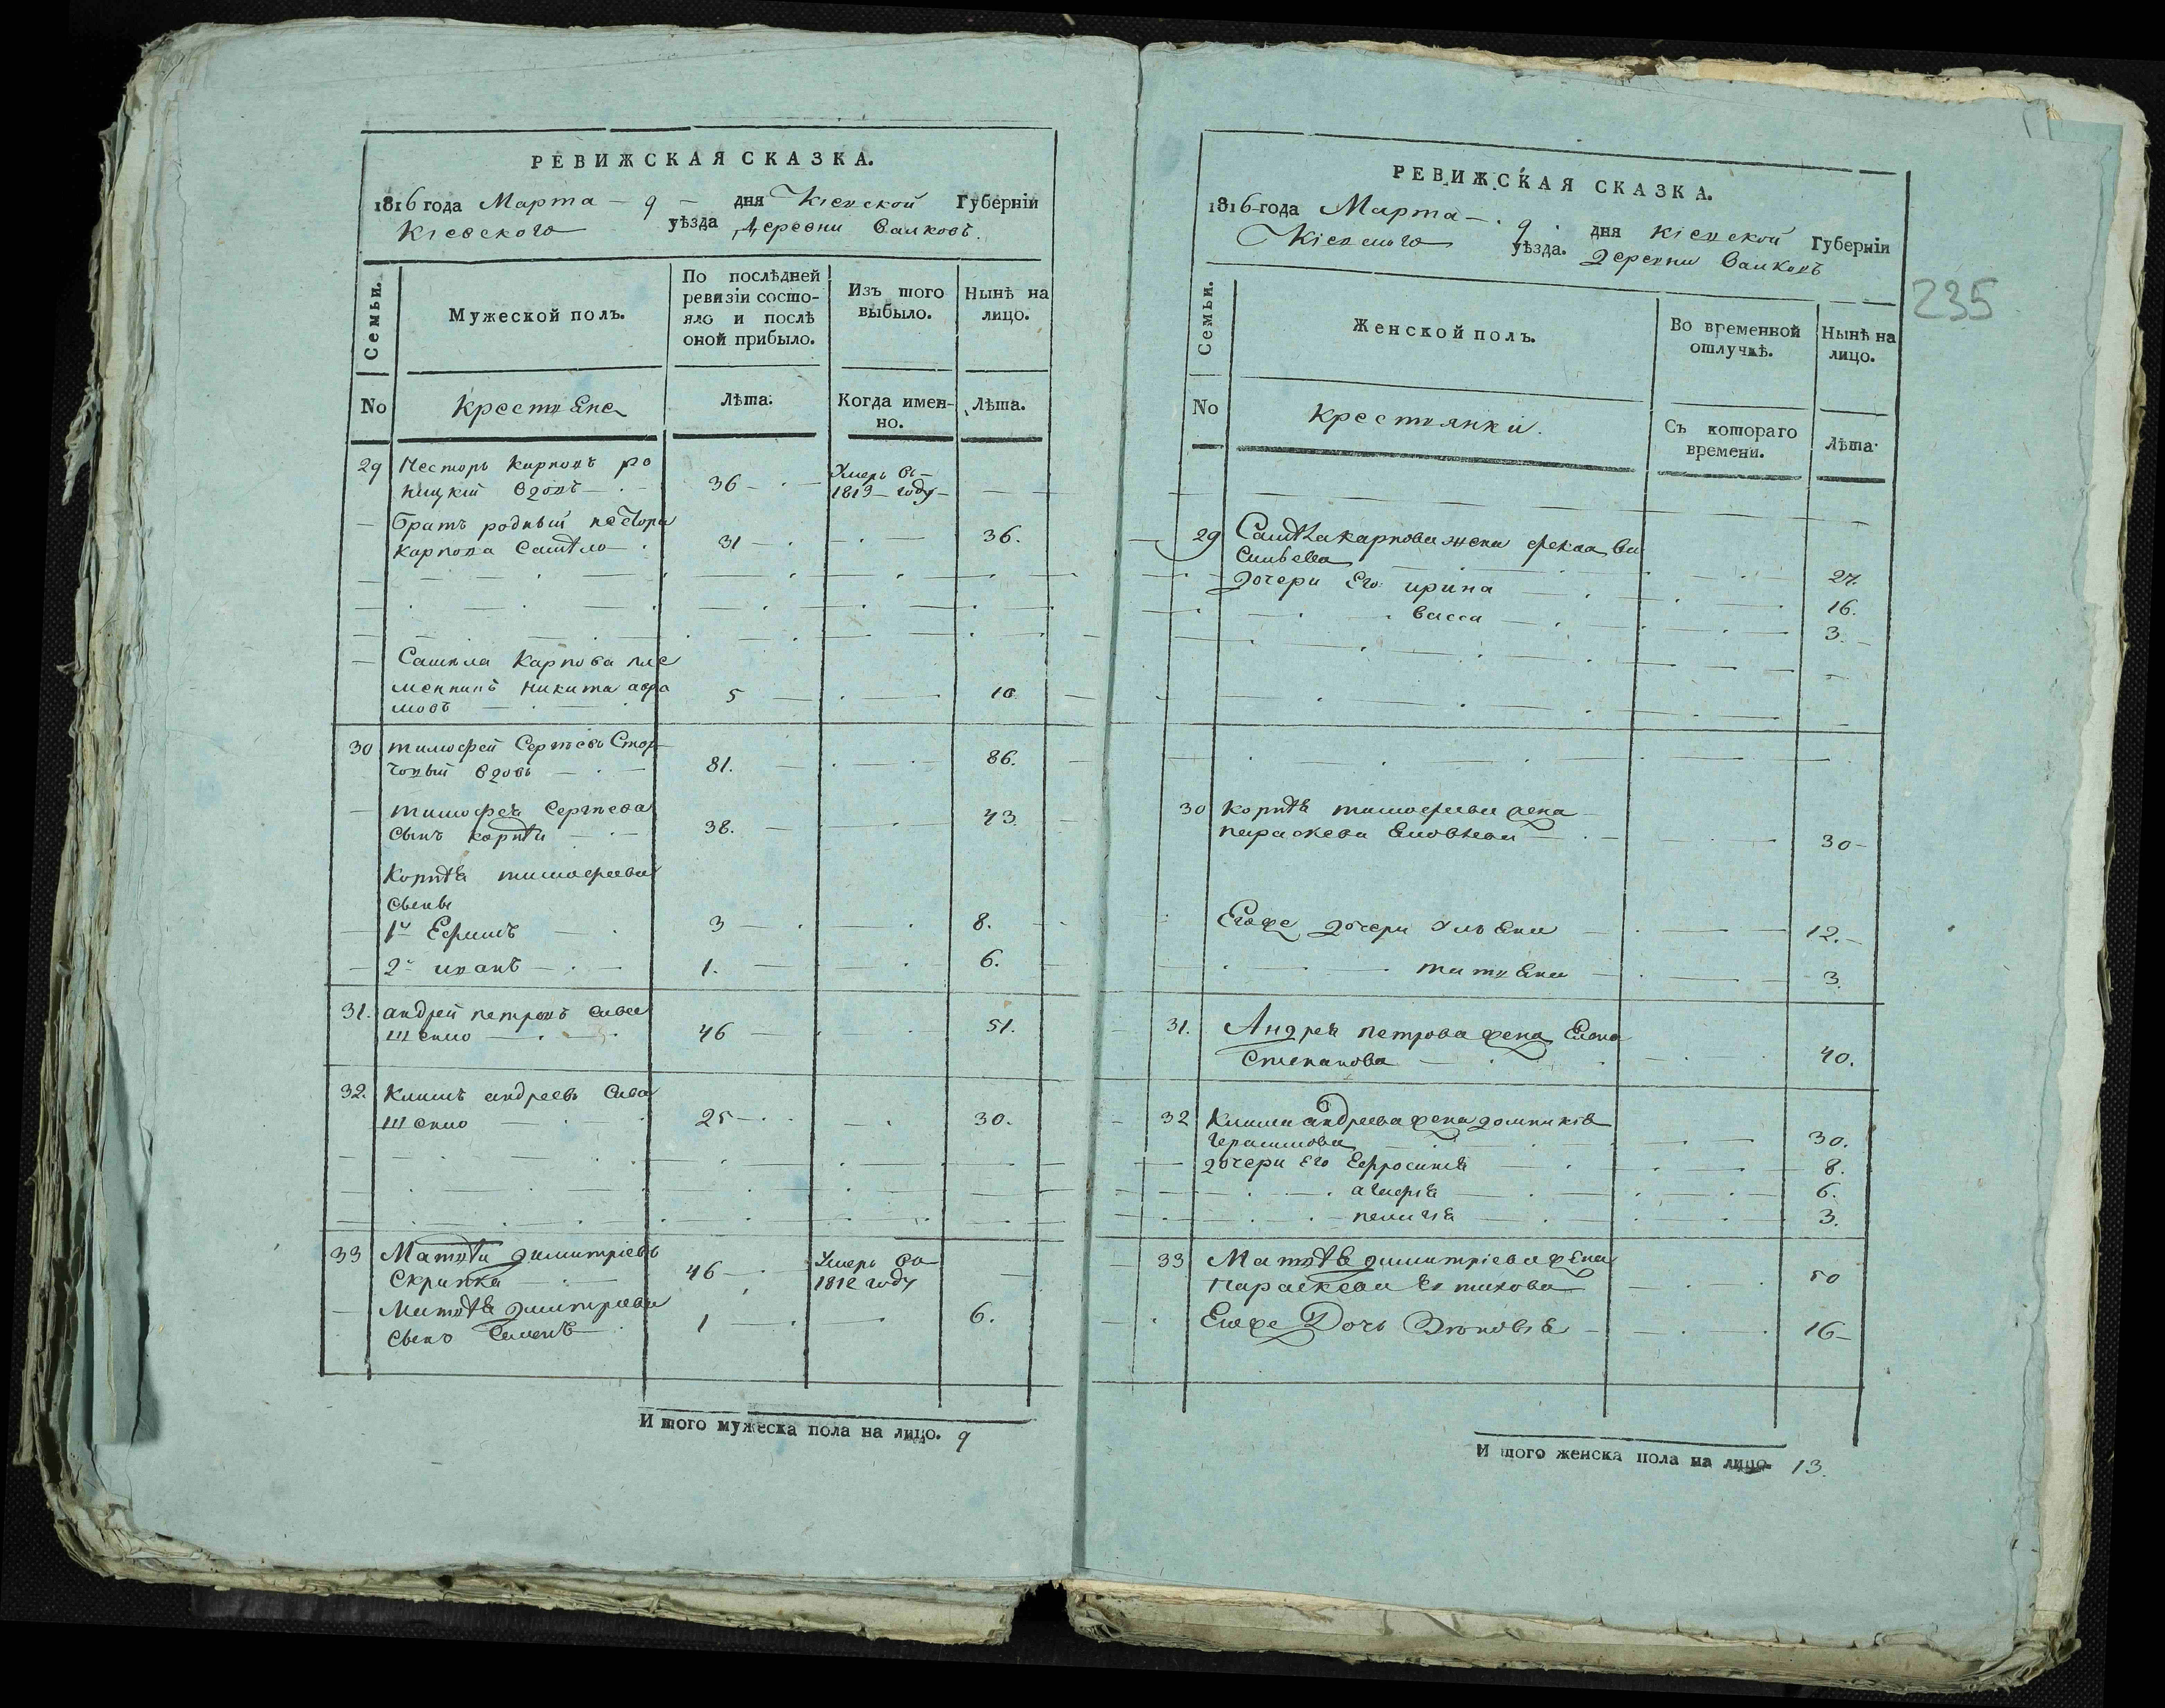 РЕВИЖСКАЯ СКАЗКА.
1816 года Марта - 9 - дня Кіевской Губерніи
Кіевского уѣзда деревни Валковъ.
Семьи.
Мужеской полъ.
По послѣдней
ревизіи состо-
яло и послѣ
оной прибыло.
Изъ того
выбыло.
Нынѣ на
лицо.
No
Крестьяне
Лѣта.
Когда имен-
но.
Лѣта.
29 Несторъ Карповъ
вдовъ 36 Умеръ въ
1813 году
Братъ родный Нестора
Карпова 31 36.
Карпова пле
менникъ Никита Авра
мовъ 5 10
30 Тимофей Сергѣевъ
вдовъ 81. 86.
Тимофея Сергѣева
сынъ Корнѣй 38. 43.
Корнѣя Тимофеева
сыны
1й Ефимъ 3 8.
2й Иванъ 1. 6.
31. Андрей Петровъ
46 51.
32. Климъ Андреевъ
25 30.
33 Матвѣй Димитріевъ
Скрипка 46 Умеръ въ
1812 году
Матвѣя Димитріева
сынъ Семенъ 1 6.
Итого мужеска пола на лицо. 9
РЕВИЖСКАЯ СКАЗКА.
1816 года Марта - 9 дня Кіевской Губерніи
Кіевского уѣзда. деревни Валковъ
235
Семьи.
Женской полъ.
Во временной
отлучкѣ.
Нынѣ на
лицо.
No
Крестьянки.
Съ котораго
времени.
Лѣта.
29 Карпова жена Фекла Ва
сильева 27.
дочери Его Ирина 16.
Васса 3.
30 Корнѣя Тимофеева жена
Параскева 30
Егоже дочери Ульяна 12.
Татьяна 3.
31. Андрея Петрова жена Елена
Степанова 40.
32 Клима Андреева жена Домникія
Герасимова 30.
дочери Его Ефросинія 8.
6.
Пелагія 3.
33 Матвѣя Димитріева жена
Параскева 50
Егоже Дочь 16
Итого женска пола на лицо 13.